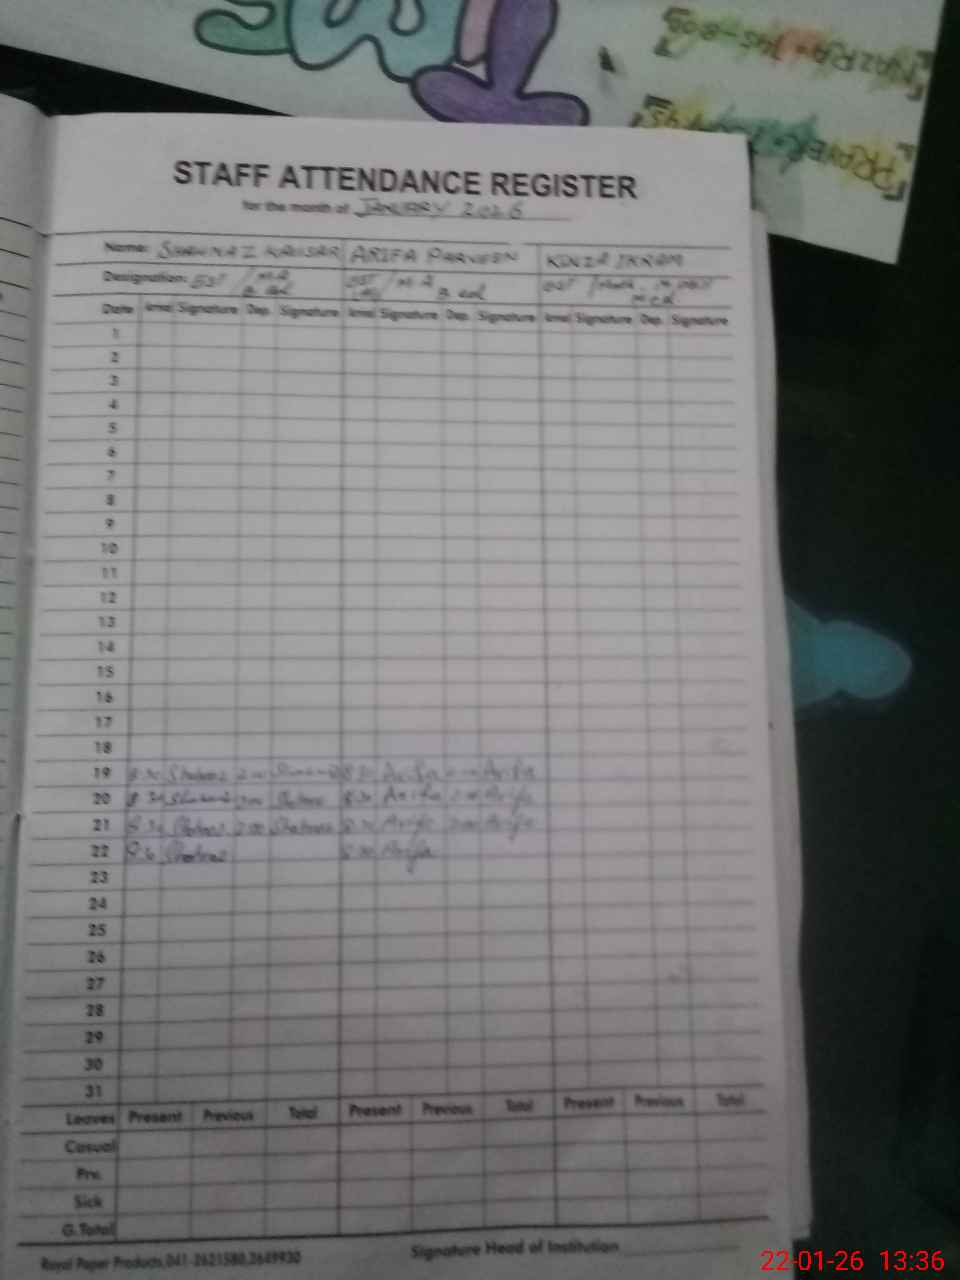 NAZRA= 745-805
PRAYER=
STAFF ATTENDANCE REGISTER
for the month of JANUARY 2026
Name: SHAHNAZ KAUSAR ARIFA PARVEEN KINZA IKRAM
Designation: EST / M.A EST / M.A EST /
B.Ed B.Ed M.Ed
Date Arrival Signature Dep. Signature Arrival Signature Dep. Signature Arrival Signature Dep. Signature
1
2
3
4
5
6
7
8
9
10
11
12
13
14
15
16
17
18
19 8:30 Shahnaz 2:00 Shahnaz 8:30 Arifa Arifa
20 8:30 Shahnaz 2:00 Shahnaz 8:30 Arifa 2:00 Arifa
21 8:30 Shahnaz 2:00 Shahnaz 8:30 Arifa 2:00 Arifa
22 Shahnaz 8:30 Arifa
23
24
25
26
27
28
29
30
31
Leaves Present Previous Total Present Previous Total Present Previous Total
Casual
Prv.
Sick
G.Total
Royal Paper Products,041-2621580,2649930 Signature Head of Institution
22-01-26 13:36